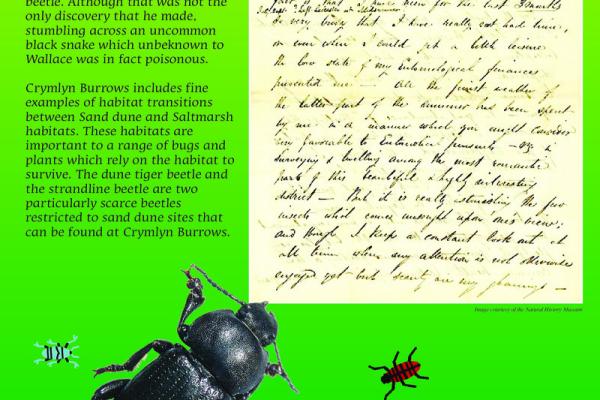 beetle. Although that was not the
only discovery that he made,
stumbling across an uncommon
black snake which unbeknown to
Wallace was in fact poisonous.
Crymlyn Burrows includes fine
examples of habitat transitions
between Sand dune and Saltmarsh
habitats. These habitats are
important to a range of bugs and
plants which rely on the habitat to
survive. The dune tiger beetle and
the strandline beetle are two
particularly scarce beetles
restricted to sand dune sites that
can be found at Crymlyn Burrows.
for the last 3 months
so very busy that I have really not had time,
or even when I could get a little leisure
the low state of my entomological finances
prevented me — All the finest weather of
the latter part of the summer has been spent
by me in a manner which you might consider
very favourable to Entomological pursuits — viz in
surveying & levelling among the most romantic
part of this beautiful & highly interesting
district — But it is really astonishing the few
insects which come unsought upon one's view,
and though I keep a constant look out at
all times when my attention is not otherwise
engaged yet but scanty are my gleanings —
Image courtesy of the Natural History Museum